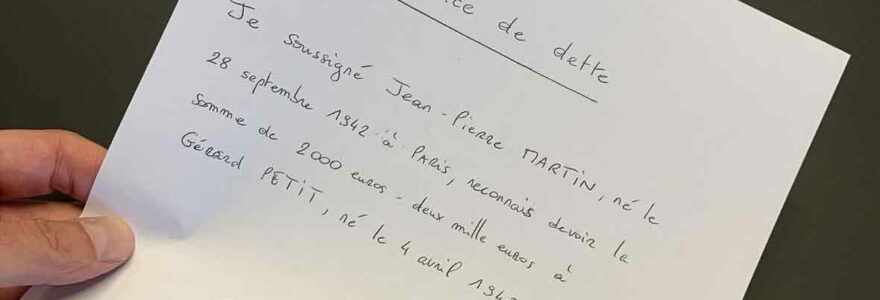 de dette
Je soussigné Jean-Pierre MARTIN, né le
28 septembre 1942 à PARIS, reconnais devoir la
somme de 2000 euros - deux mille euros à
Gérard PETIT, né le 4 avril